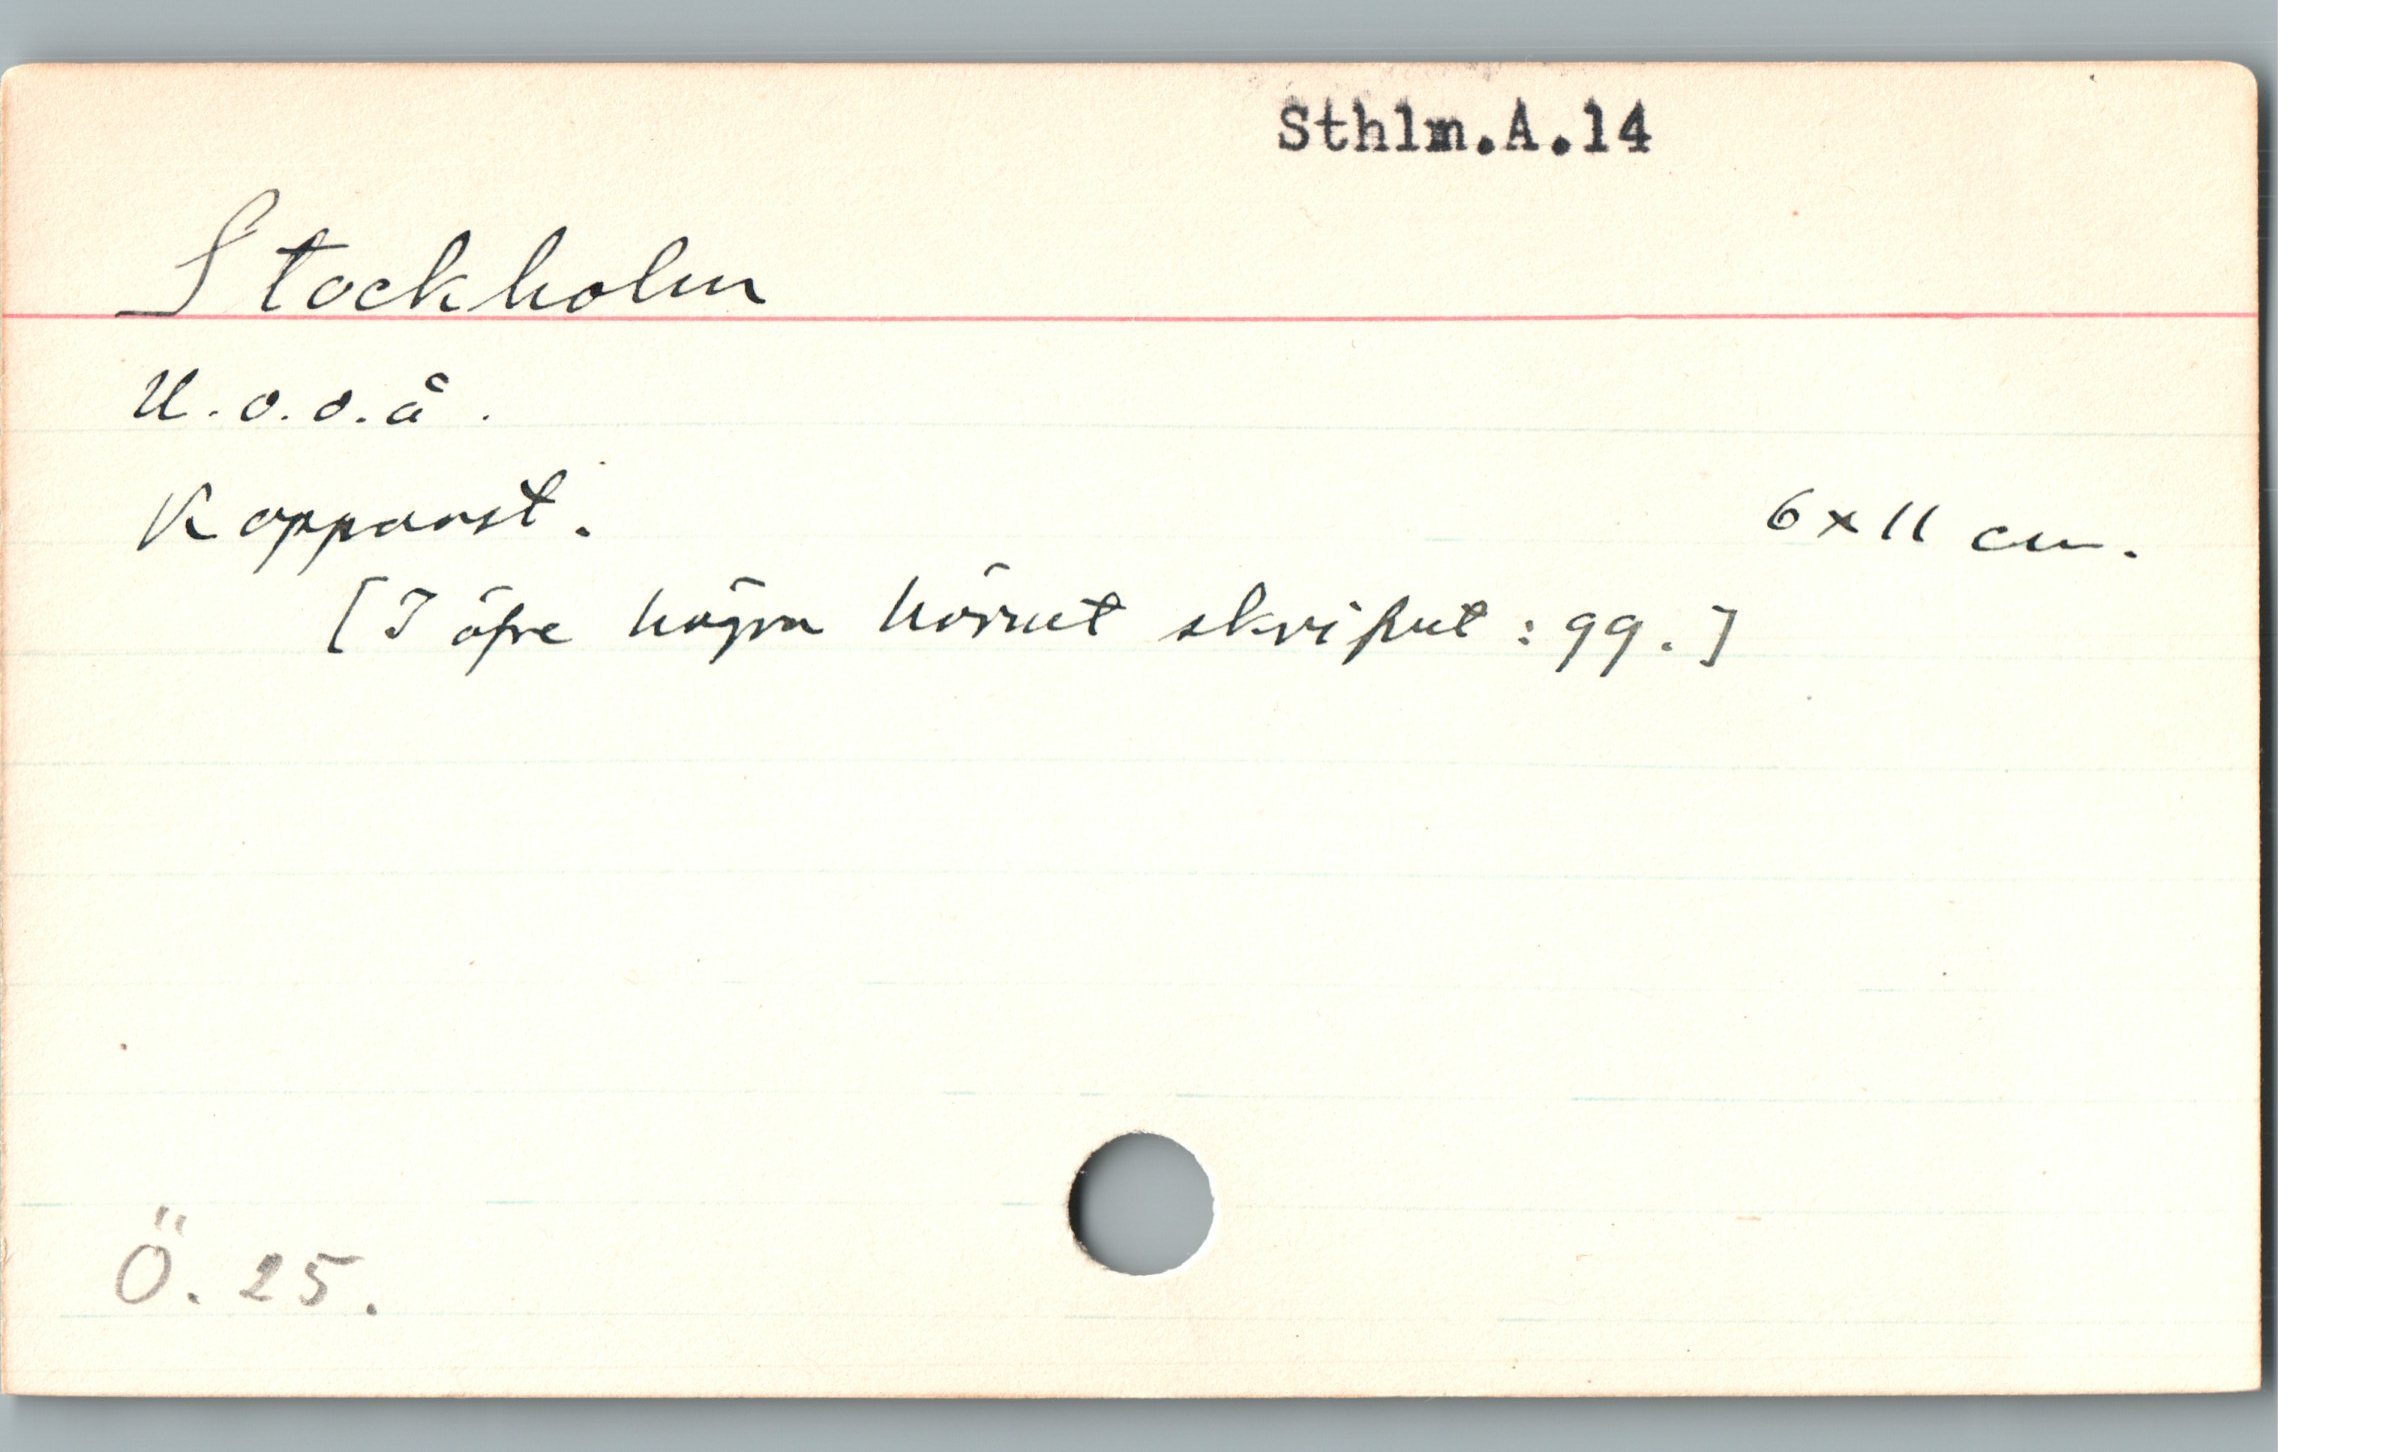 Sthlm.A.14
Stockholm
U.o.o.å.
Kopparst. 6x11 cm.
[I öfre högra hörnet skrifvet: 99.]
Ö. 25.